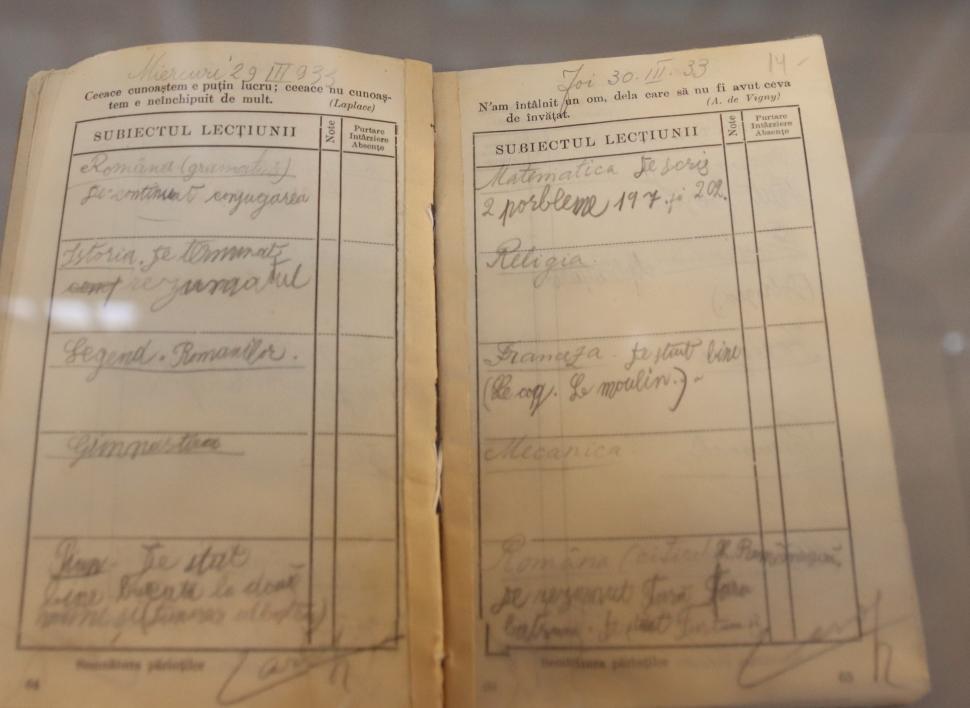 Miercuri 29 III 933
Ceeace cunoaștem e puțin lucru; ceeace nu cunoaș-
tem e neînchipuit de mult.
(Laplace)
SUBIECTUL LECȚIUNII
Note
Purtare
Intârziere
Absențe
Româna (gramatica)
continuat conjugarea
Istoria. Se terminat
rezumatul
Legend. Romanilor.
Gimnastica
Se stut
bine Bucata la două
Semnătura părinților
64
Joi 30-III-33
14-
N'am întâlnit un om, dela care să nu fi avut ceva
de învățat.
(A. de Vigny)
SUBIECTUL LECȚIUNII
Note
Purtare
Intârziere
Absențe
Matematica Se scris
2 porbleme 197 și 202.
Religia.
Franceza. Se stiut bine
(Le coq. Le moulin.)
Mecanica.
Româna
se rezumat
Semnătura părinților
65